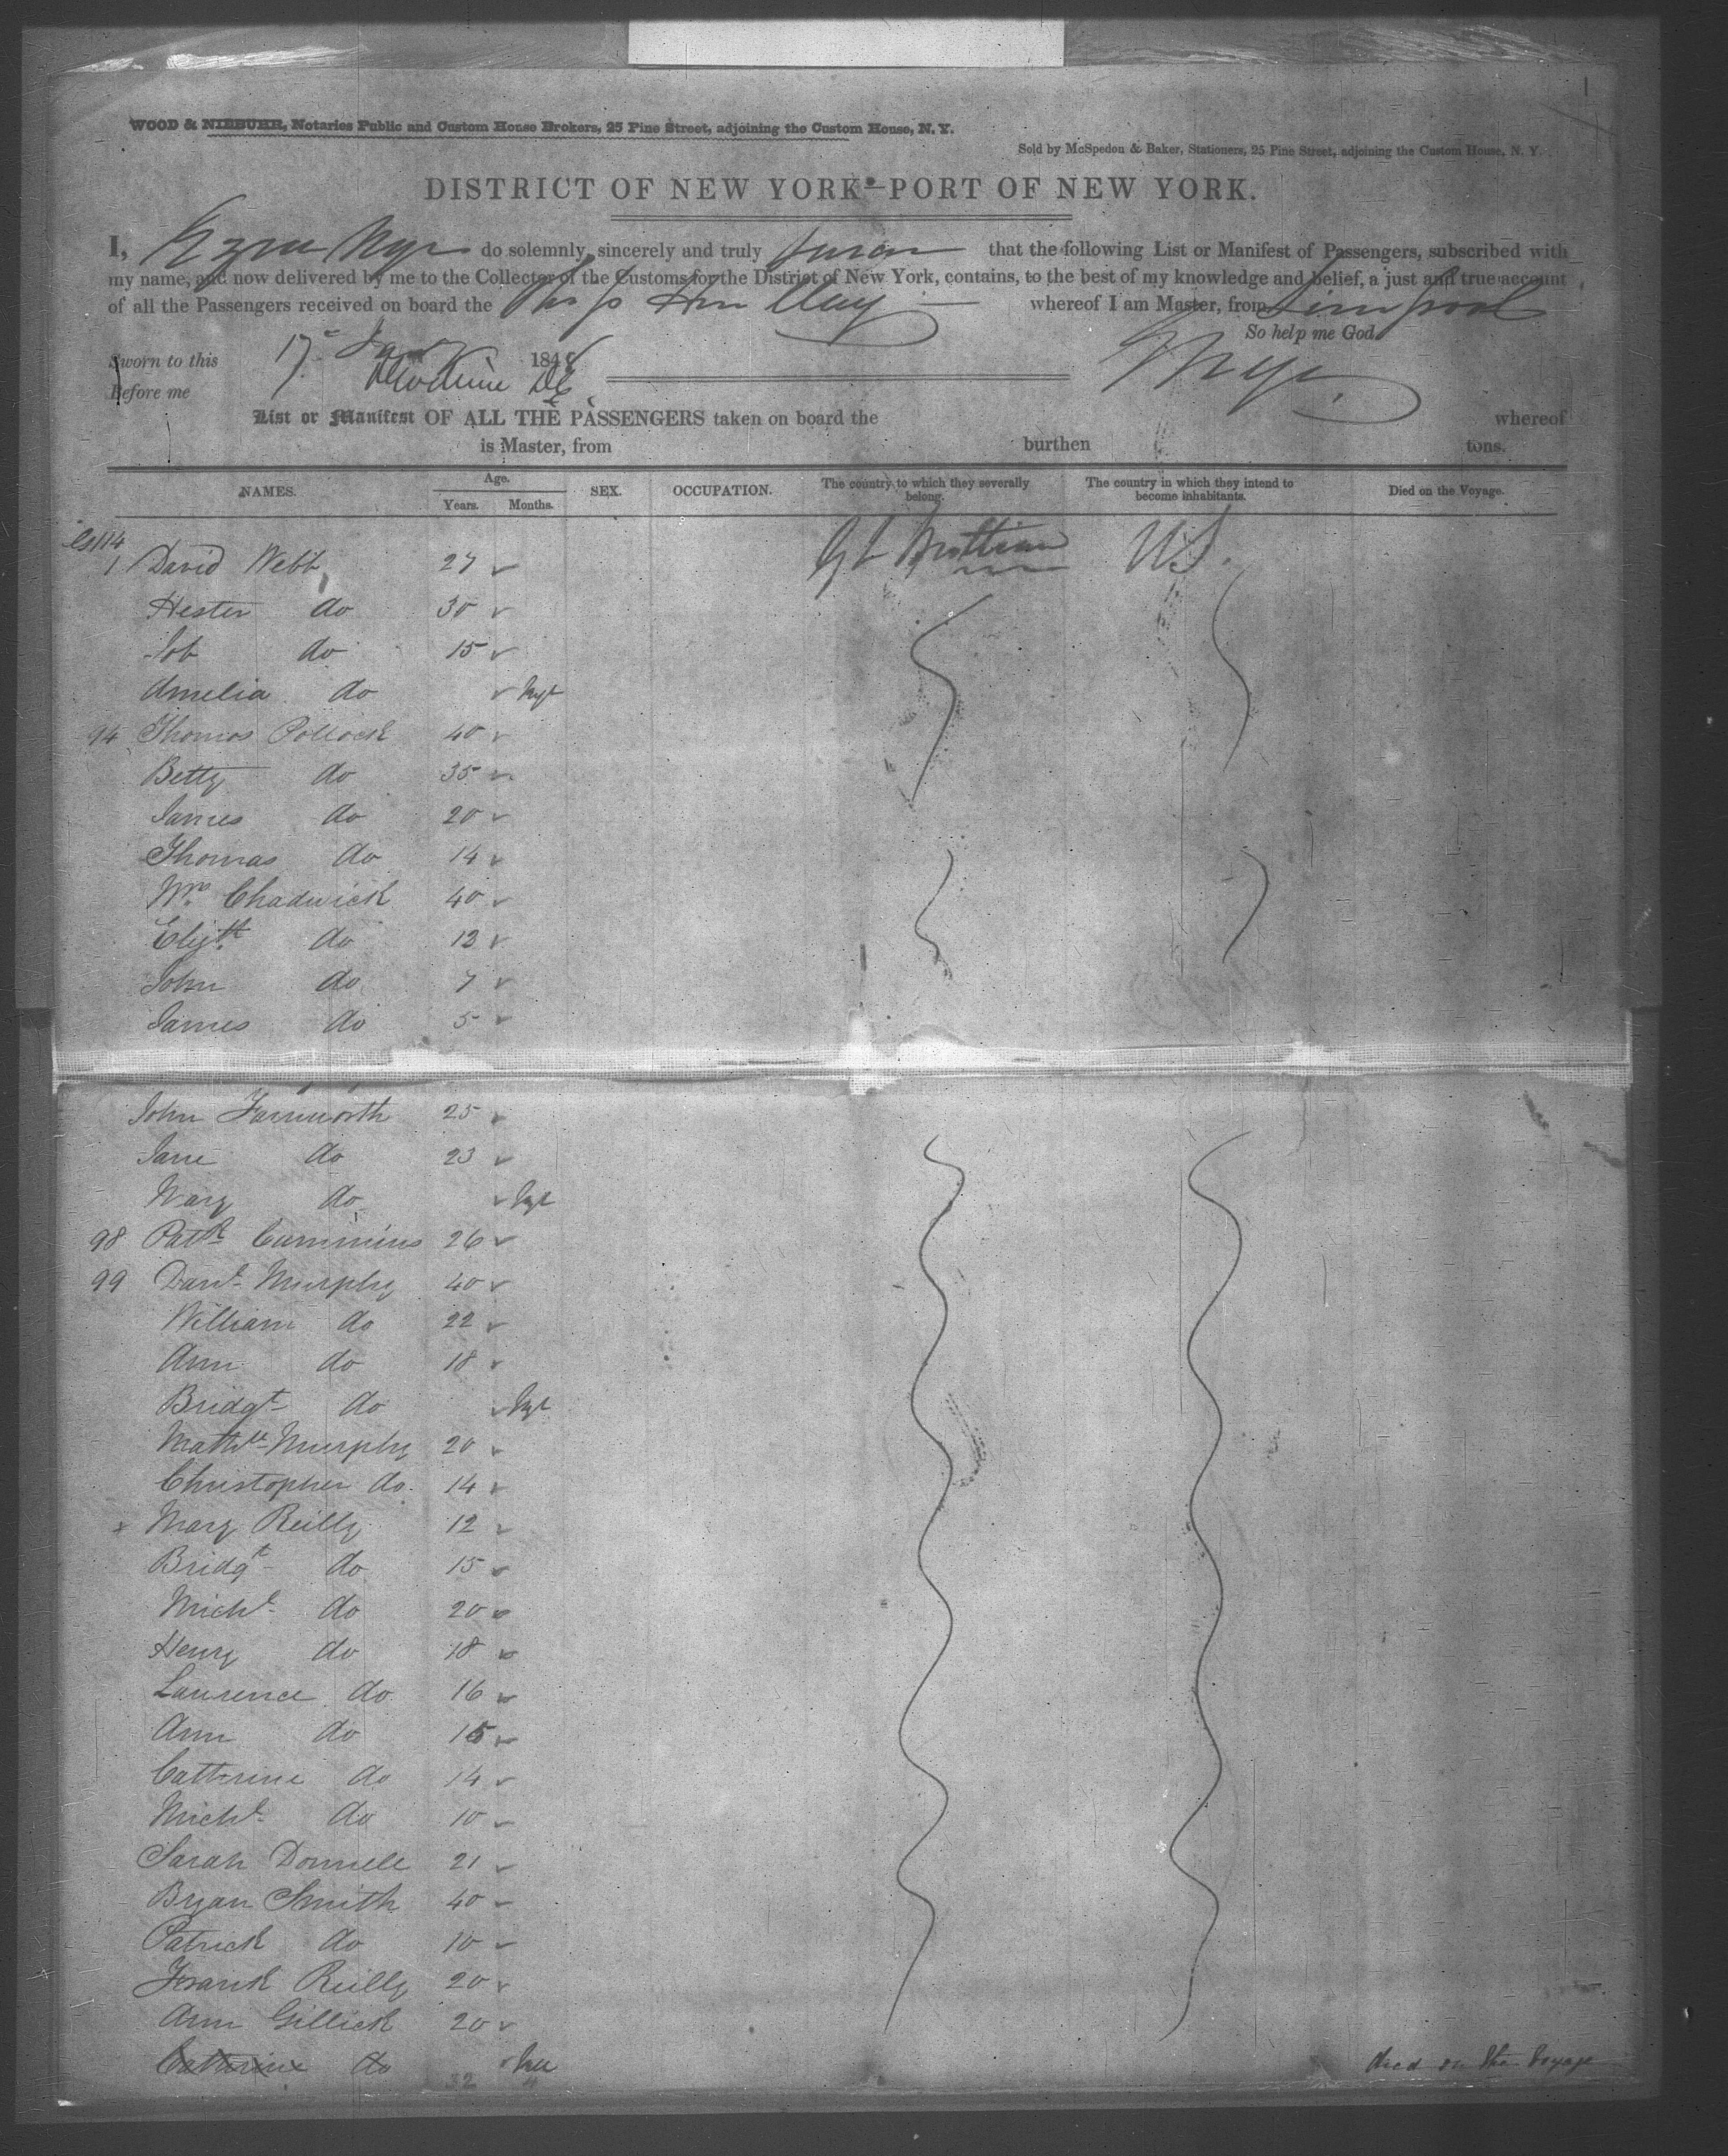 WOOD & NIEBUHR, Notaries Public and Custom House Brokers, 25 Pine Street, adjoining the Custom House, N. Y.
Sold by McSpedon & Baker, Stationers, 25 Pine Street, adjoining the Custom House, N. Y.
DISTRICT OF NEW YORK—PORT OF NEW YORK.
I, Ezra Nye do solemnly, sincerely and truly swear that the following List or Manifest of Passengers, subscribed with
my name, and now delivered by me to the Collector of the Customs for the District of New York, contains, to the best of my knowledge and belief, a just and true account
of all the Passengers received on board the Ship Hen Clay whereof I am Master, from Liverpool
So help me God.
Sworn to this 17 Jany 184
Before me E Nye
List or Manifest OF ALL THE PASSENGERS taken on board the whereof
is Master, from burthen tons.
NAMES. Age. Years. Months. SEX. OCCUPATION. The country to which they severally belong. The country in which they intend to become inhabitants. Died on the Voyage.
1 David Webb 27 Gt Brittian US.
Hester do 30
Job do 15
Amelia do Inft
94 Thomas Pollock 40
Betty do 35
James do 20
Thomas do 14
Mrs Chadwick 40
Elizth do 13
John do 7
James do 5
John Farnworth 25
Jane do 23
Mary do Inft
98 Patk Cummins 26
99 Danl Murphy 40
William do 22
Ann do 18
Bridgt do Inft
Mathw Murphy 20
Christopher do. 14
x Mary Reilly 12
Bridgt do 15
Michl do 20
Henry do 18
Laurence do 16
Ann do 15
Cathrine do 14
Michl do 10
Sarah Donnell 21
Bryan Smith 40
Patrick do 10
Frank Reilly 20
Ann Gillick 20
Cathrine do died on the Voyage
32 4